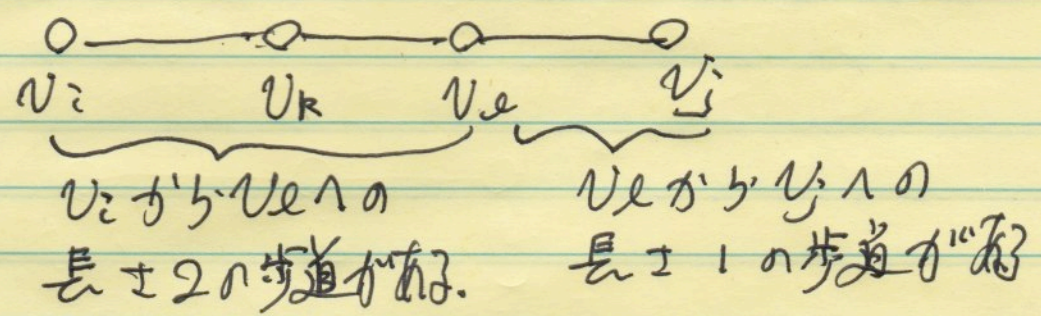 vi vk vl vj
viからvlへの
長さ2の歩道がある.
vlからvjへの
長さ1の歩道がある